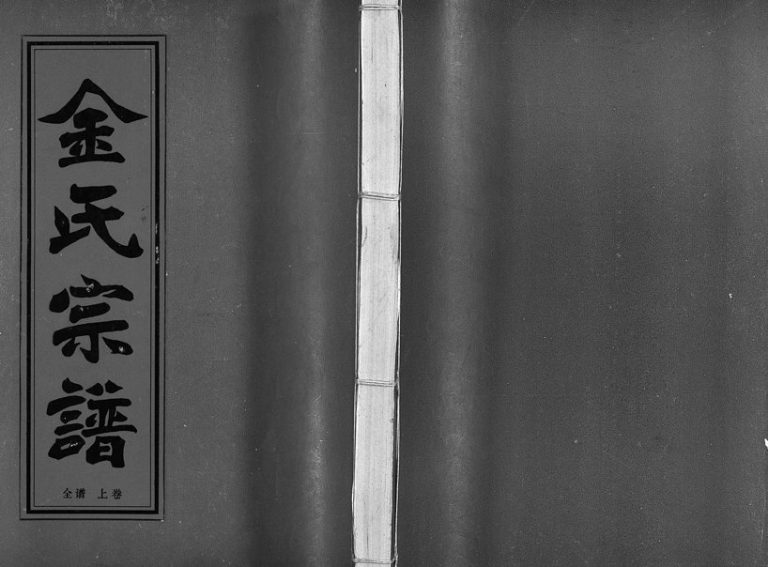 金氏宗譜
全谱 上卷